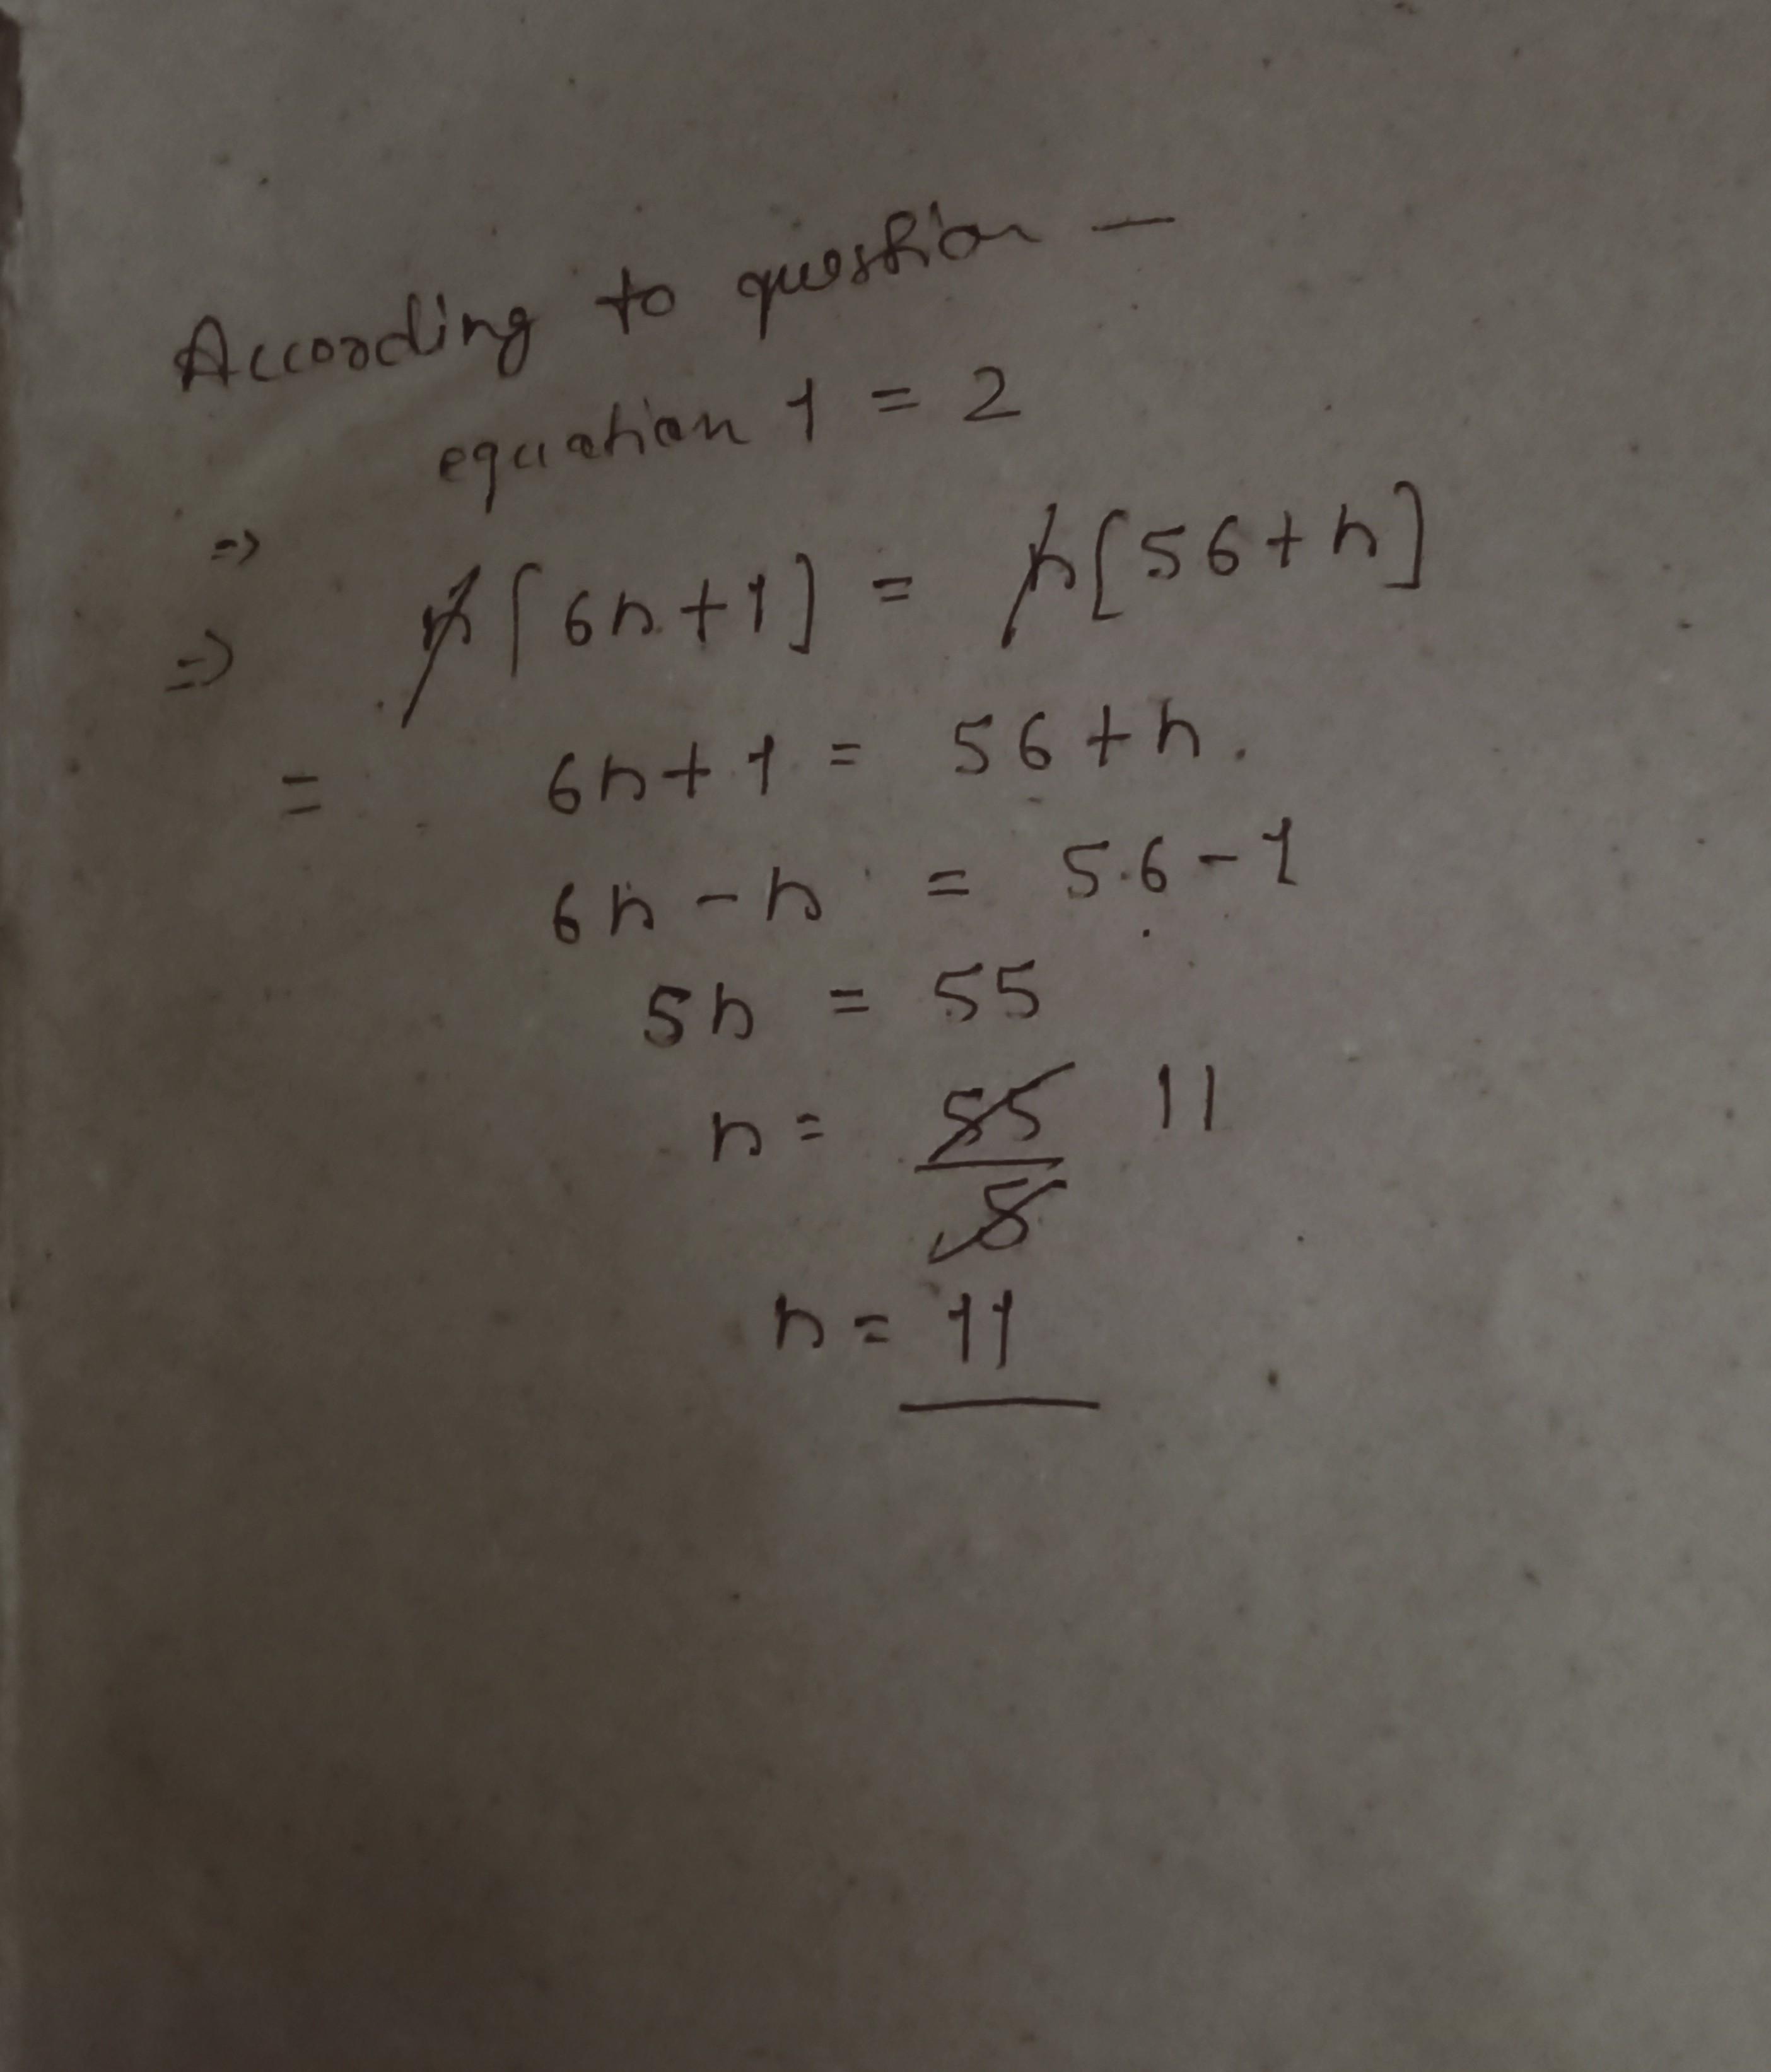 According to question —
equation 1 = 2
=>
=> n[6n+1] = n[56+n]
= 6n+1 = 56+n.
6n-n = 56-1
5n = 55
n = 55/5 11
n = 11